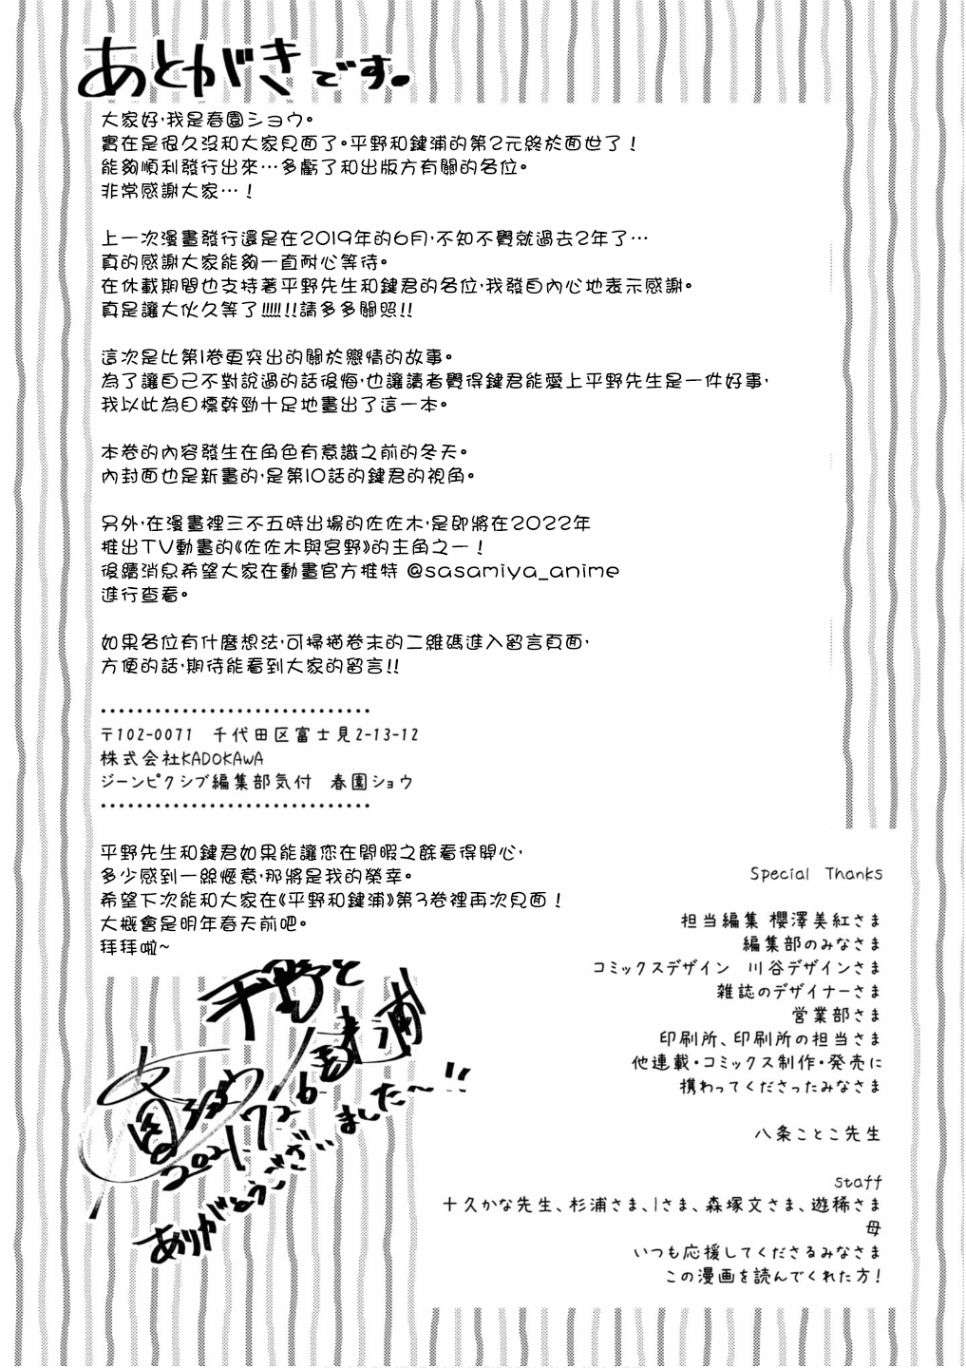 あとがきです。
大家好,我是春園ショウ。
實在是很久沒和大家見面了。平野和鍵浦的第2元終於面世了！
能夠順利發行出來…多虧了和出版方有關的各位。
非常感謝大家…！
上一次漫畫發行還是在2019年的6月,不知不覺就過去2年了…
真的感謝大家能夠一直耐心等待。
在休載期間也支持著平野先生和鍵君的各位,我發自內心地表示感謝。
真是讓大伙久等了!!!!!!!請多多關照!!
這次是比第1卷更突出的關於戀情的故事。
為了讓自己不對說過的話後悔,也讓讀者覺得鍵君能愛上平野先生是一件好事,
我以此為目標幹勁十足地畫出了這一本。
本卷的內容發生在角色有意識之前的冬天。
內封面也是新畫的,是第10話的鍵君的視角。
另外,在漫畫裡三不五時出場的佐佐木,是即將在2022年
推出TV動畫的《佐佐木與宮野》的主角之一！
後續消息希望大家在動畫官方推特 @sasamiya_anime
進行查看。
如果各位有什麼想法,可掃描卷末的二維碼進入留言頁面,
方便的話,期待能看到大家的留言!!
〒102-0071 千代田区富士見2-13-12
株式会社KADOKAWA
ジーンピクシブ編集部気付 春園ショウ
平野先生和鍵君如果能讓您在閒暇之餘看得開心,
多少感到一絲愜意,那將是我的榮幸。
希望下次能和大家在《平野和鍵浦》第3卷裡再次見面！
大概會是明年春天前吧。
拜拜啦~
平野と
鍵浦
春園ショウ
2021.7.26
ありがとうございました〜!!
Special Thanks
担当編集 櫻澤美紅さま
編集部のみなさま
コミックスデザイン 川谷デザインさま
雑誌のデザイナーさま
営業部さま
印刷所、印刷所の担当さま
他連載・コミックス制作・発売に
携わってくださったみなさま
八条ことこ先生
staff
十久かな先生、杉浦さま、Iさま、森塚文さま、遊稀さま
母
いつも応援してくださるみなさま
この漫画を読んでくれた方！